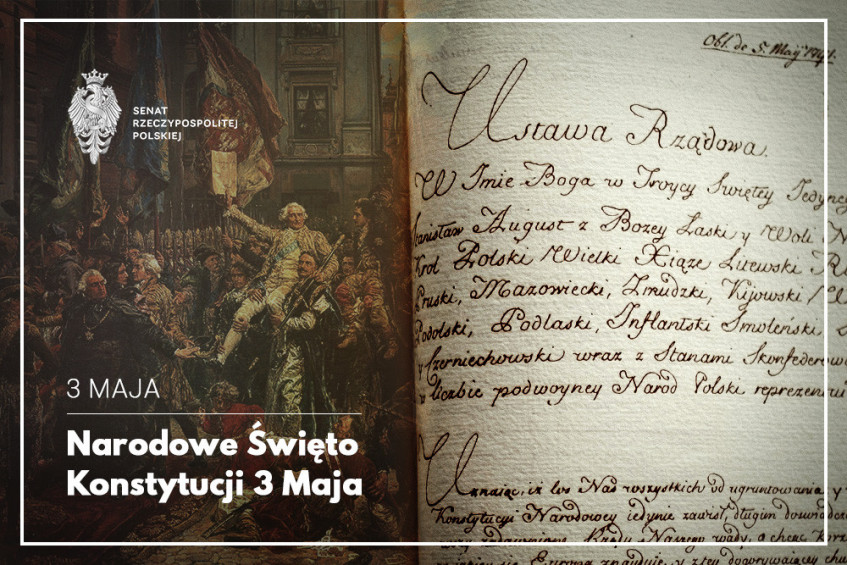 SENAT
RZECZYPOSPOLITEJ
POLSKIEJ
3 MAJA
Narodowe Święto
Konstytucji 3 Maja
Obl. de 5. Maÿ 1791.
Ustawa Rządowa.
W Imie Boga w Troycy Swiętey Jedyney
Stanisław August z Bozey Łaski y Woli N
Krol Polski Wielki Xiąże Litewski R
Pruski, Mazowiecki, Zmudzki, Kijowski
Podolski, Podlaski, Inflantski Smoleński
y Czerniechowski wraz z Stanami Skonfederow
w liczbie podwoyney Narod Polski reprezentu
Uznaiąc, iż los Nas wszystkich od ugruntowania y
Konstytucyi Narodowey iedynie zawisł, długim doswiadcz
Rządu Naszego wady, a chcąc korz
Europa znayduie, y z tey dogorywaiącey chw